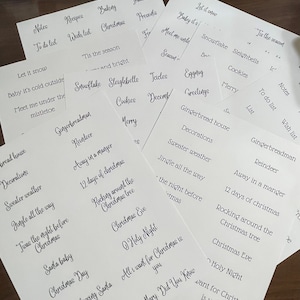 Notes
Recipes
Baking
To do list
Wish list
Christmas
Presents
Let it snow
Baby it's
Meet me under
'Tis the season
Let it snow
Baby it's cold outside
Meet me under the
mistletoe
'Tis the season
and bright
Snowflake
Sleighbells
Icicles
Cookies
Decorations
Merry
Wrapping
Greetings
Snowflake
Sleighbells
Cookies
Merry
Party
List
Notes
To do list
Wish list
Gingerbread house
Decorations
Sweater weather
Jingle all the way
the night before
christmas
Gingerbreadman
Reindeer
Away in a manger
12 days of christmas
Rocking around the
christmas tree
Christmas Eve
Holy Night
want for Christmas
bread house
Decorations
Sweater weather
Jingle all the way
Twas the night before
Christmas
Santa baby
Christmas Day
Santa
Gingerbreadman
Reindeer
Away in a manger
12 days of christmas
Rocking around the
Christmas tree
Christmas Eve
O Holy Night
All I want for Christmas is
you
Mary Did You Know